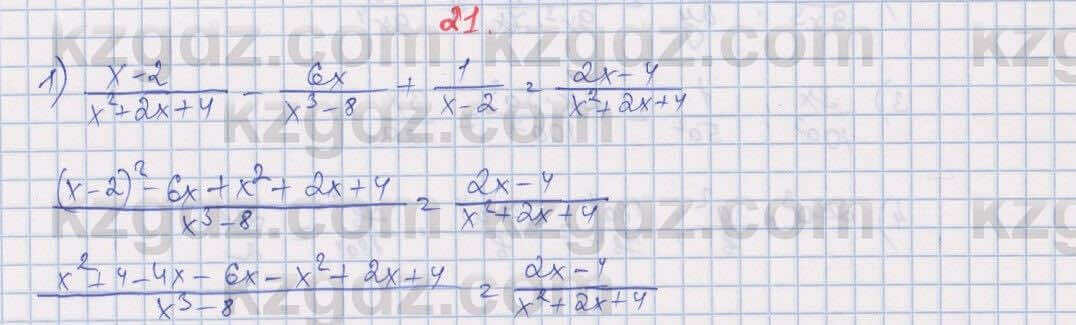 kzgdz.com kzgdz.com kzgdz.com
21.
1) (x-2)/(x²+2x+4) - 6x/(x³-8) + 1/(x-2) = (2x-4)/(x²+2x+4)
kzgdz.com kzgdz.com
((x-2)²-6x+x²+2x+4)/(x³-8) = (2x-4)/(x²+2x+4)
kzgdz.com kzgdz.com kzgdz.com
(x²+4-4x-6x-x²+2x+4)/(x³-8) = (2x-4)/(x²+2x+4)